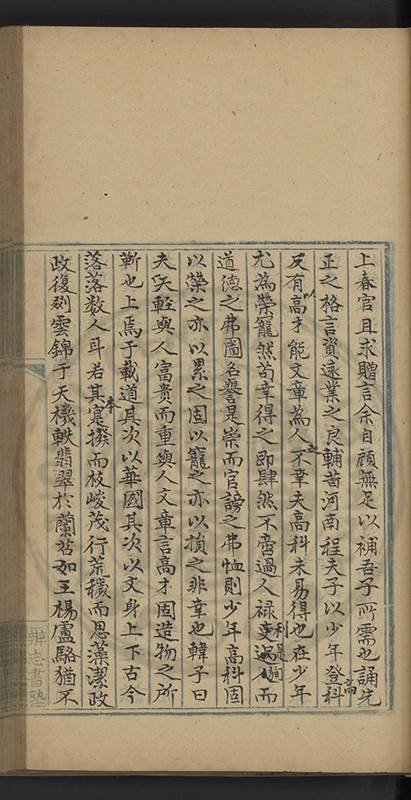 上春官且求贈言余自顧無足以補吾子所需也誦先
正之格言資遠業之良輔昔河南程夫子以少年登高科
及有高才能文章為人之不幸夫高科未易得也在少年
尤為榮寵然苟幸得之即肆然不啻過人祿 而
道德之弗圖名譽是崇而官謗之弗恤則少年高科固
以榮之亦以累之固以寵之亦以損之非幸也韓子曰
夫天輕與人富貴而重與人文章言高才固造物之所
靳也上焉于載道其次以華國其次以文身上下古今
落落數人耳若其寔撥本而枝峻茂行荒穢而思藻潔政
政復剡雲錦于天機軼翡翠於蘭苕如王楊盧駱猶不
辨志書塾